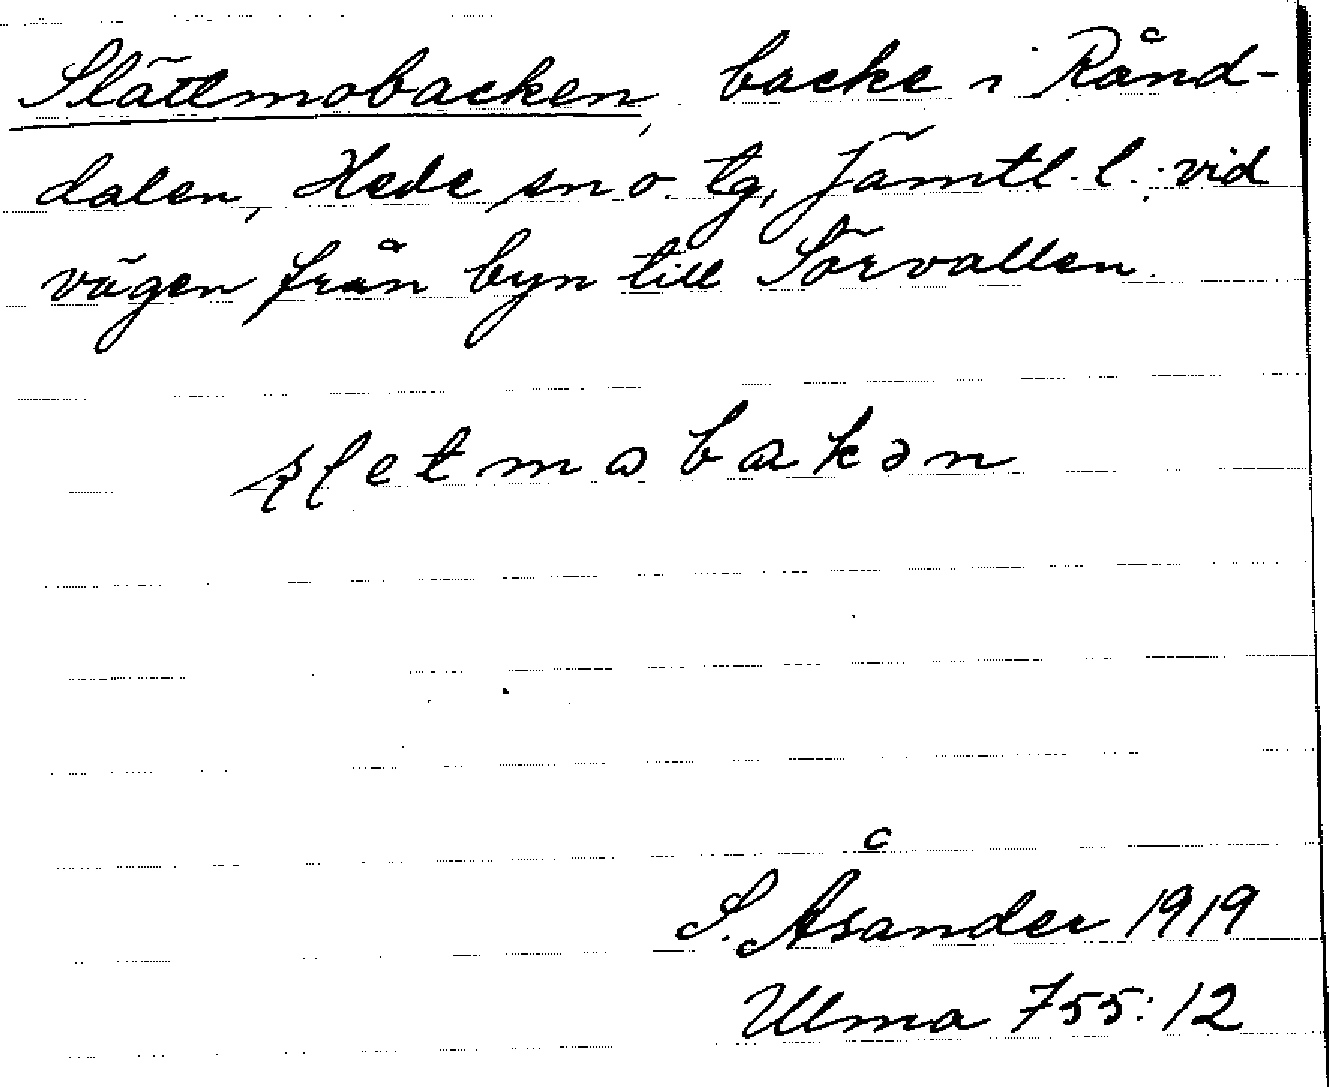 Slättmobacken, backe i Rånd-
dalen, Hede sn o. tg, Jämtl. l.; vid
vägen från byn till Sörvallen.
ʂɭetmωbakən
S. Åsander 1919
Ulma 755:12